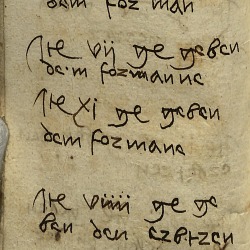 dem forman
Jte vij ge geben
dem formanne
Jte xi ge geben
dem formane
Jte viiii ge ge
ben den